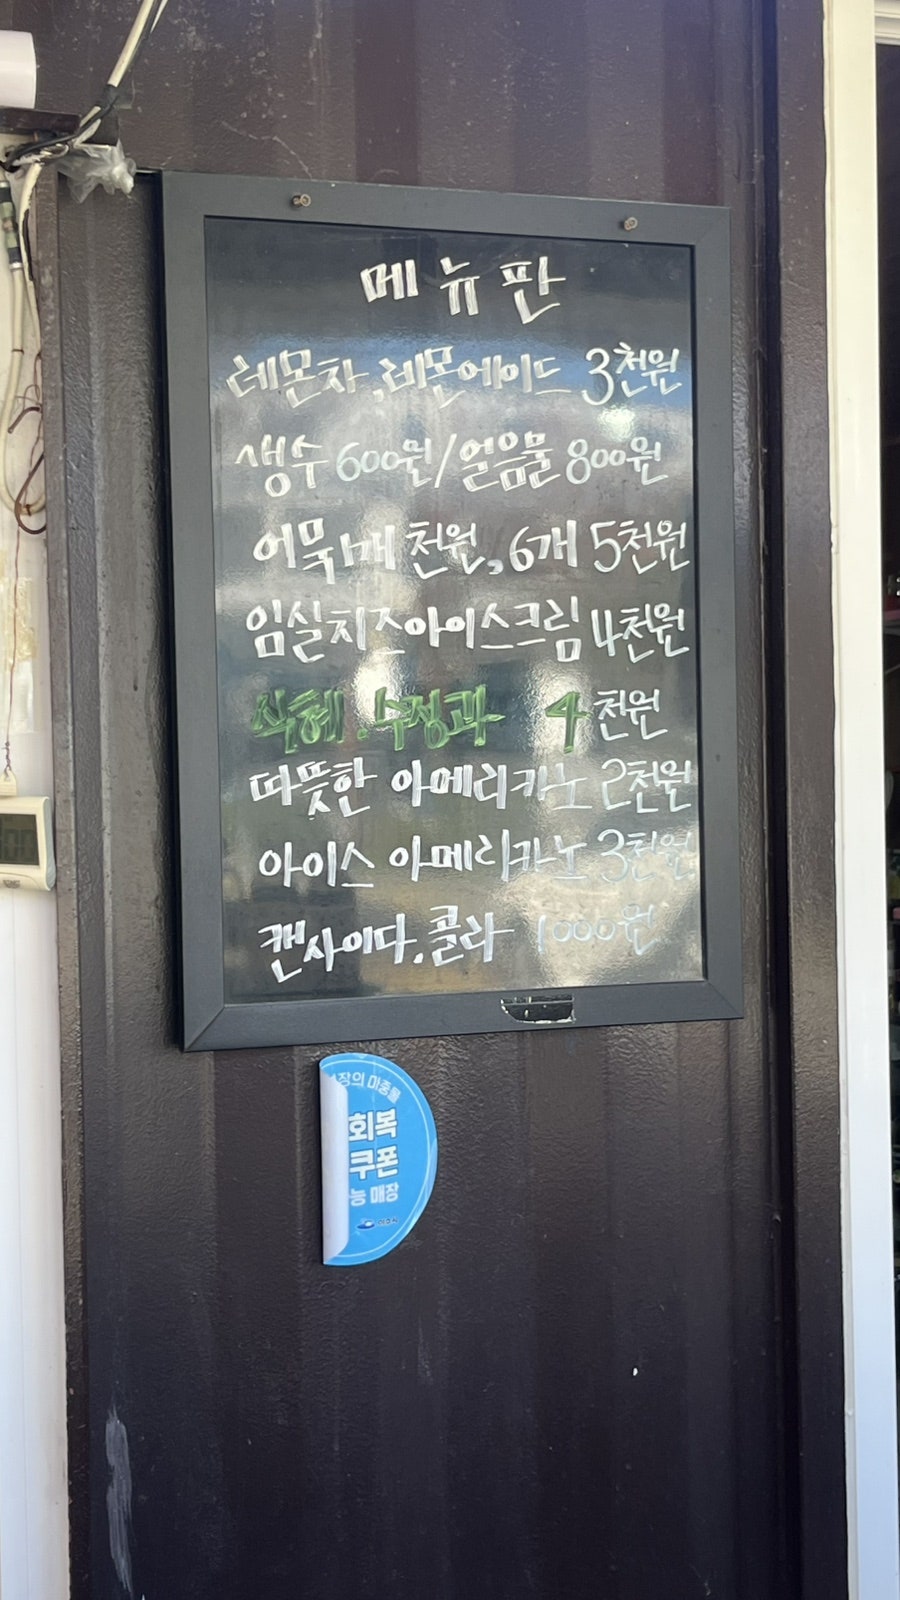 메뉴판
레몬차, 레몬에이드 3천원
생수 600원/얼음물 800원
어묵1개 천원, 6개 5천원
임실치즈아이스크림 4천원
식혜. 수정과 4천원
따뜻한 아메리카노 2천원
아이스 아메리카노 3천원
캔사이다. 콜라 1000원
장의 마중물
회복
쿠폰
능 매장